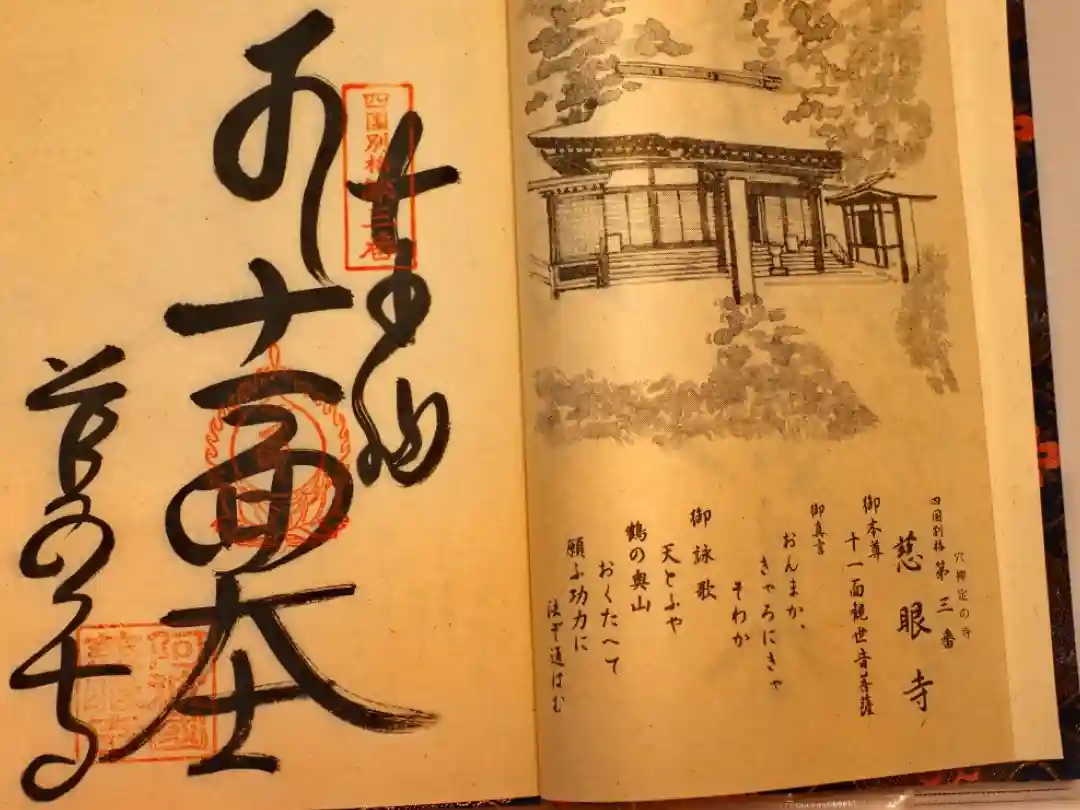 四国別格第三番
穴禅定の寺
慈眼寺
御本尊
十一面観世音菩薩
御真言
おんまか、
きゃろにきゃ
そわか
御詠歌
天とふや
鶴の奥山
おくたへて
願ふ功力に
法ぞ通はむ
四国別格第三番
十一面大士